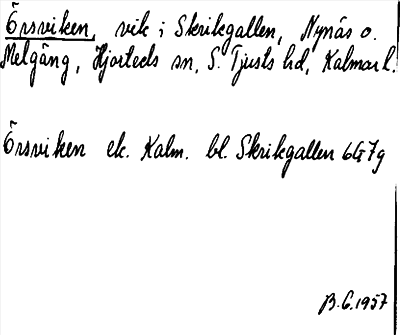 Örsviken, vik i Skrikgallen, Nynäs o.
Melgäng, Hjorteds sn, S. Tjusts hd, Kalmar l.
Örsviken ek. Kalm. bl. Skrikgallen 6G7g
B.G. 1957